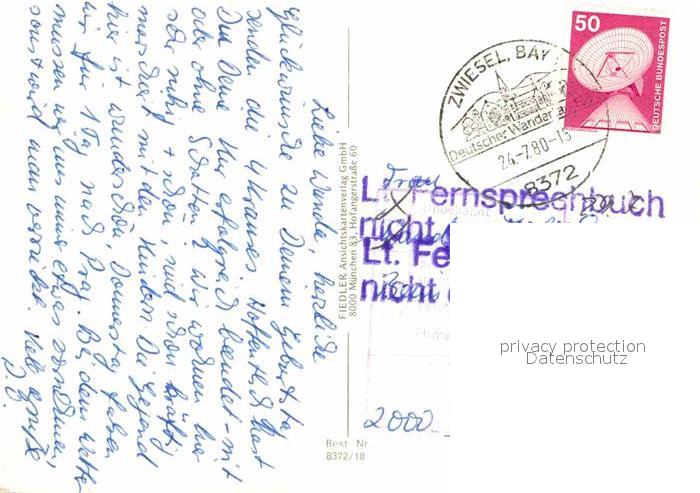 Liebe Wanda, herzliche
Glückwünsche zu Deinem Geburtstag
senden die 4 Hoffentlich hast
Du Deine Kur erfolgreich beendet - mit
oder ohne Wir wohnen hier
sehr ruhig + schön, sind schon kräftig
marschiert mit den Kindern. Die Gegend
hier ist wunderschön. Donnerstag fahren
wir für 1 Tag nach Prag. Bei dem Wetter
müssen wir uns etwas vornehmen,
sonst wird man verrückt. Viele Grüße
FIEDLER Ansichtskartenverlag GmbH
8000 München 83, Hofangerstraße 60
Best. Nr.
8372/18
50
DEUTSCHE BUNDESPOST
ZWIESEL, BAY
Deutscher Wander
24.-7.80-15
8372
Frau
Lt. Fernsprechbuch
nicht
Lt. Fe
nicht
2000
privacy protection
Datenschutz